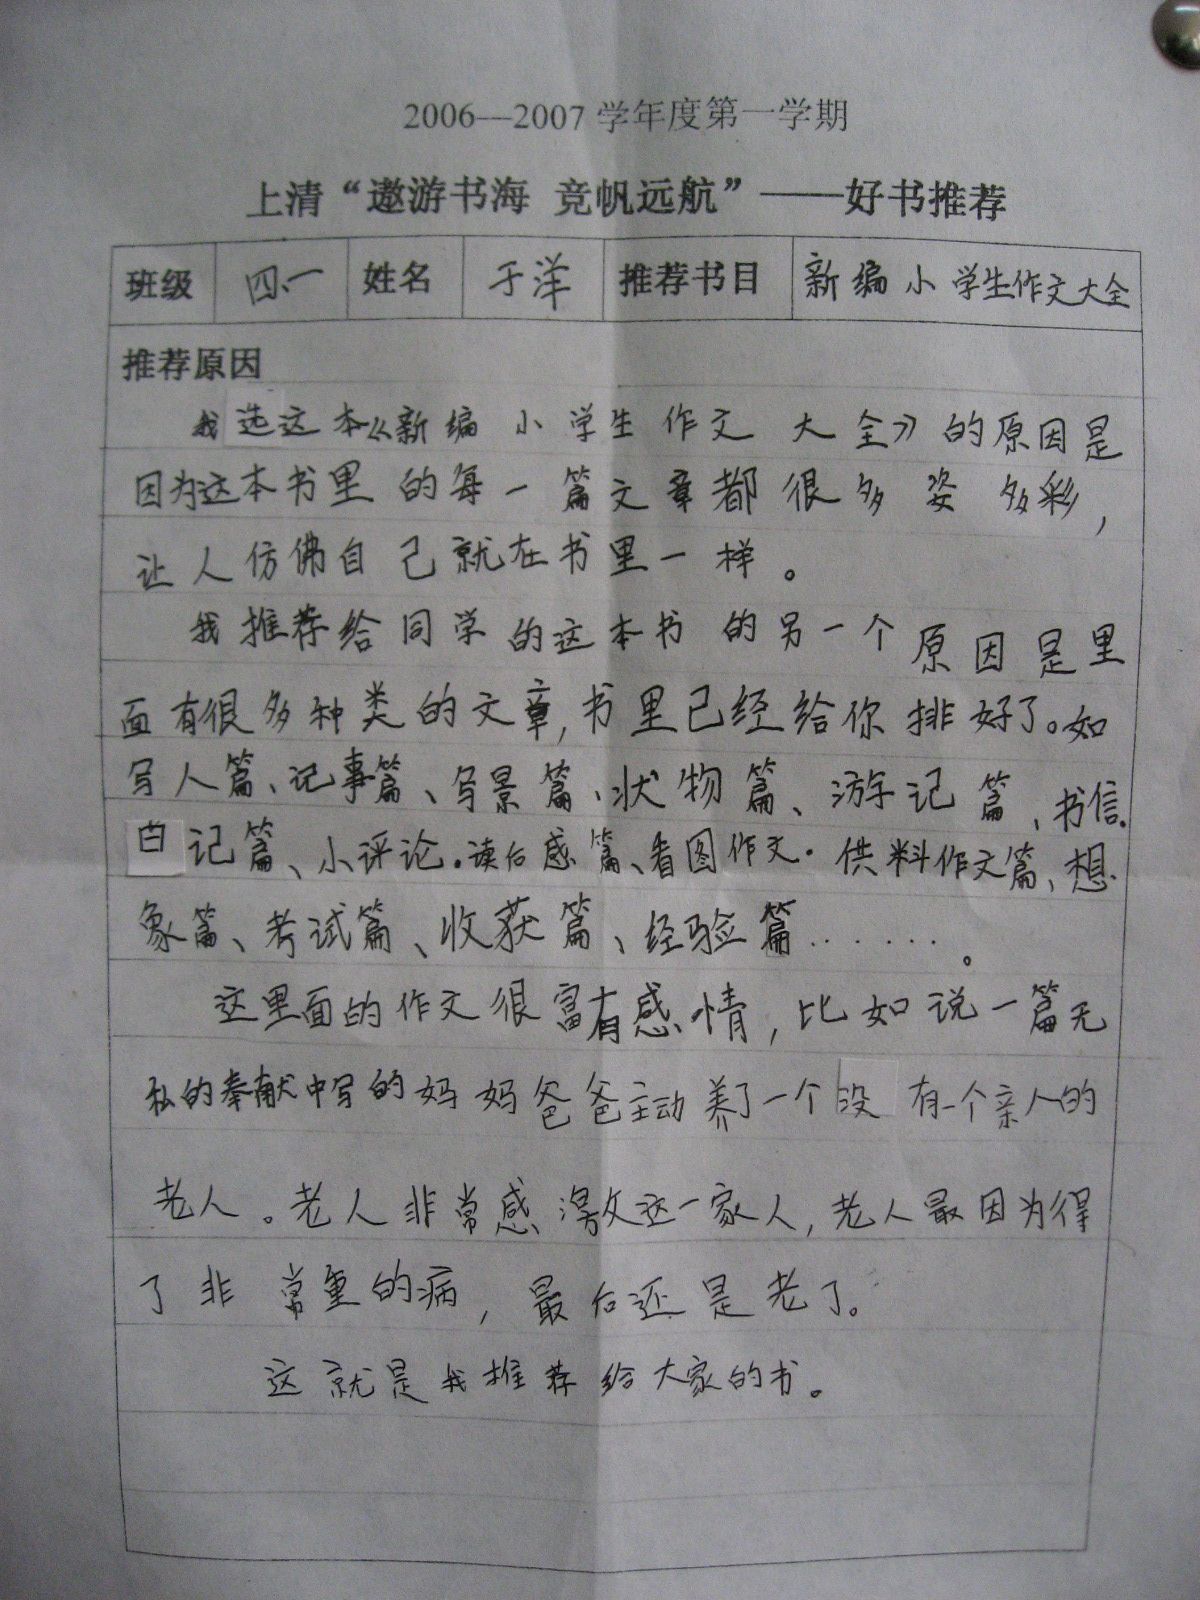 2006—2007 学年度第一学期
上清“遨游书海 竞帆远航”——好书推荐
班级 四、一 姓名 于洋 推荐书目 新编小学生作文大全
推荐原因
我选这本《新编小学生作文大全》的原因是
因为这本书里的每一篇文章都很多姿多彩，
让人仿佛自己就在书里一样。
我推荐给同学的这本书的另一个原因是里
面有很多种类的文章，书里已经给你排好了。如
写人篇、记事篇、写景篇、状物篇、游记篇、书信、
日记篇、小评论、读后感篇、看图作文、供料作文篇、想
象篇、考试篇、收获篇、经验篇……。
这里面的作文很富有感情，比如说一篇无
私的奉献中写的妈妈爸爸主动养了一个没有一个亲人的
老人。老人非常感激这一家人，老人最因为得
了非常重的病，最后还是老了。
这就是我推荐给大家的书。